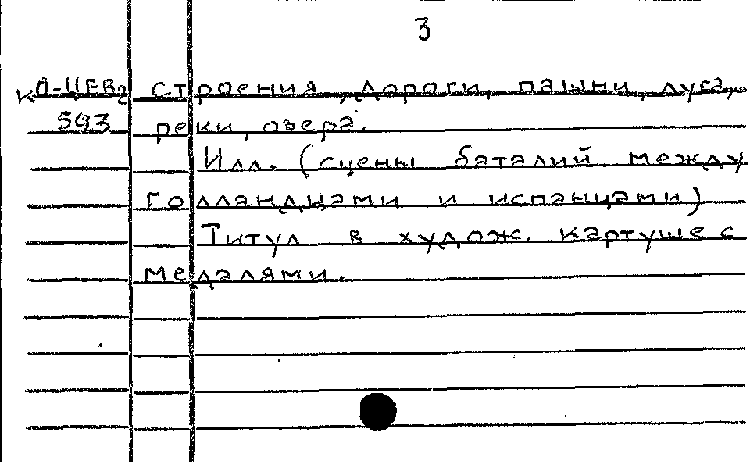 3
К Д-ЦЕВ2 строения, дороги, пашни, луга,
593 реки, озера.
Илл. (сцены баталий между
голландцами и испанцами)
Титул в худож. картуше с
медалями.